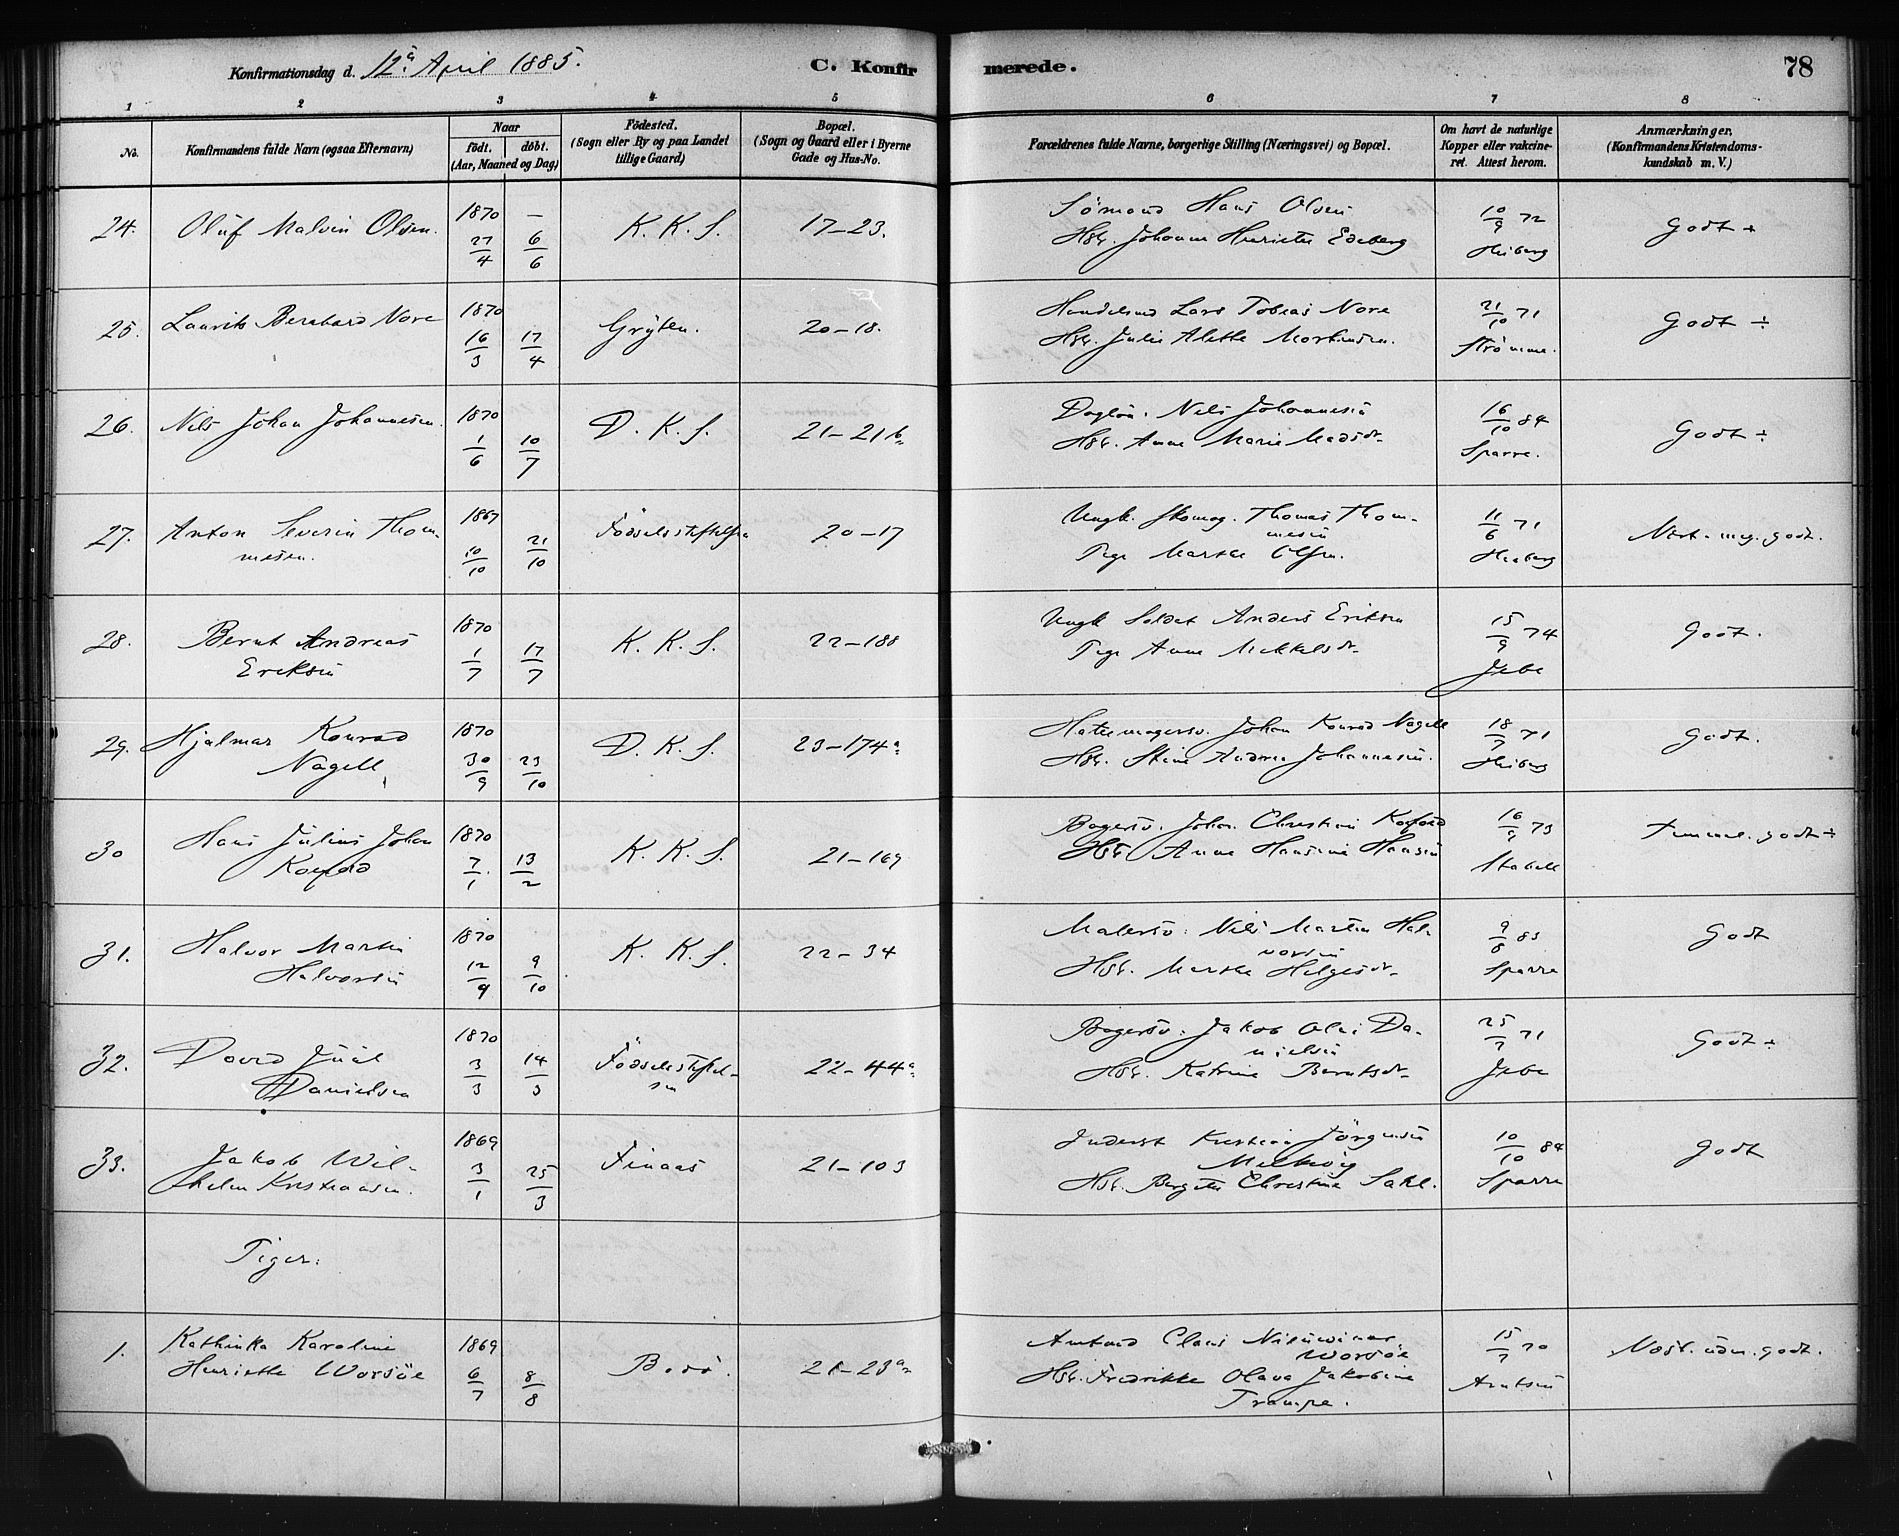 Konfirmationsdag d. 12te April 1885.
C. Konfirmerede.
78
1 2 3 4 5 6 7 8
No.
Konfirmandens fulde Navn (ogsaa Efternavn)
Naar
født. døbt.
(Aar, Maaned og Dag)
Fødested.
(Sogn eller By og paa Landet
tillige Gaard)
Bopæl.
(Sogn og Gaard eller i Byerne
Gade og Hus-No.
Forældrenes fulde Navne, borgerlige Stilling (Næringsvei) og Bopæl.
Om havt de naturlige
Kopper eller vakcine-
ret. Attest herom.
Anmærkninger.
(Konfirmandens Kristendoms-
kundskab m. V.)
24. Oluf Malvin Olsen. 1870 27/4 – 6/6 K. K. S. 17–23.
Sømand Hans Olsen
Hst. Johanne Henriette Edeberg
10/9 72
Heiberg
Godt +
25. Laurits Bernhard Nore 1870 16/3 17/4 Gryten. 20–18.
Handelsmd Lars Tobias Nore
Hst. Julie Alette Mortensen.
21/10 71
Strømme.
Godt ÷
26. Nils Johan Johannesen. 1870 1/6 10/7 D. K. S. 21–21b
Dagløn. Nils Johannesen
Hst. Anne Marie Madsdr
16/10 84
Sparre.
Godt ÷
27. Anton Severin Thom-
mesen. 1867 10/10 21/10 Fødselsstiftelsen 20–17
Ungk. Skomag. Thomas Thom-
mesen
Pige Marthe Olsen.
11/6 71
Heiberg
Mest. meg. godt.
28. Bernt Andreas
Eriksen 1870 1/7 17/7 K. K. S. 22–188
Ungk. Soldat Anders Eriksen
Pige Anne Mikkelsdr
15/9 74
Jebe
Godt.
29. Hjalmar Konrad
Nagell 1870 30/9 23/10 D. K. S. 23–174a
Hattemagersv. Johan Konrad Nagell
Hst. Stine Andrea Johannesen.
18/7 71
Heiberg
Godt.
30 Hans Julius Johan
Kofoed 1870 7/1 13/2 K. K. S. 21–169
Bagersv. Johan Christian Kofoed
Hst. Anne Hansine Hansen
16/9 73
Stabell
Temmel. godt ÷
31. Halvor Martin
Halvorsen 1870 12/9 9/10 K. K. S. 22–34
Malersv. Nils Martin Hal-
vorsen
Hst. Marthe Helgesdr
9/8 83
Sparre
Godt
32. David Juul
Danielsen 1870 3/3 14/3 Fødselsstiftel-
sen 22–44a
Bagersv. Jakob Olai Da-
nielsen
Hst. Katrine Berntsdr
25/7 71
Jebe
Godt ÷
33. Jakob Wil-
helm Kristiansen. 1869 3/1 25/3 Finaas 21–103
Inderst Kristian Jørgensen
Melkvig
Hst. Bergitte Christine Sahl.
10/10 84
Sparre
Godt
Piger.
1. Kathinka Karoline
Henriette Worsöe 1869 6/7 8/8 Bodö. 21–23a
Amtmd Claus Nieuwinar
Worsöe
Hst. Fredrikke Olava Jakobine
Trampe.
15/7 70
Arntsen
Mest. udm. godt.